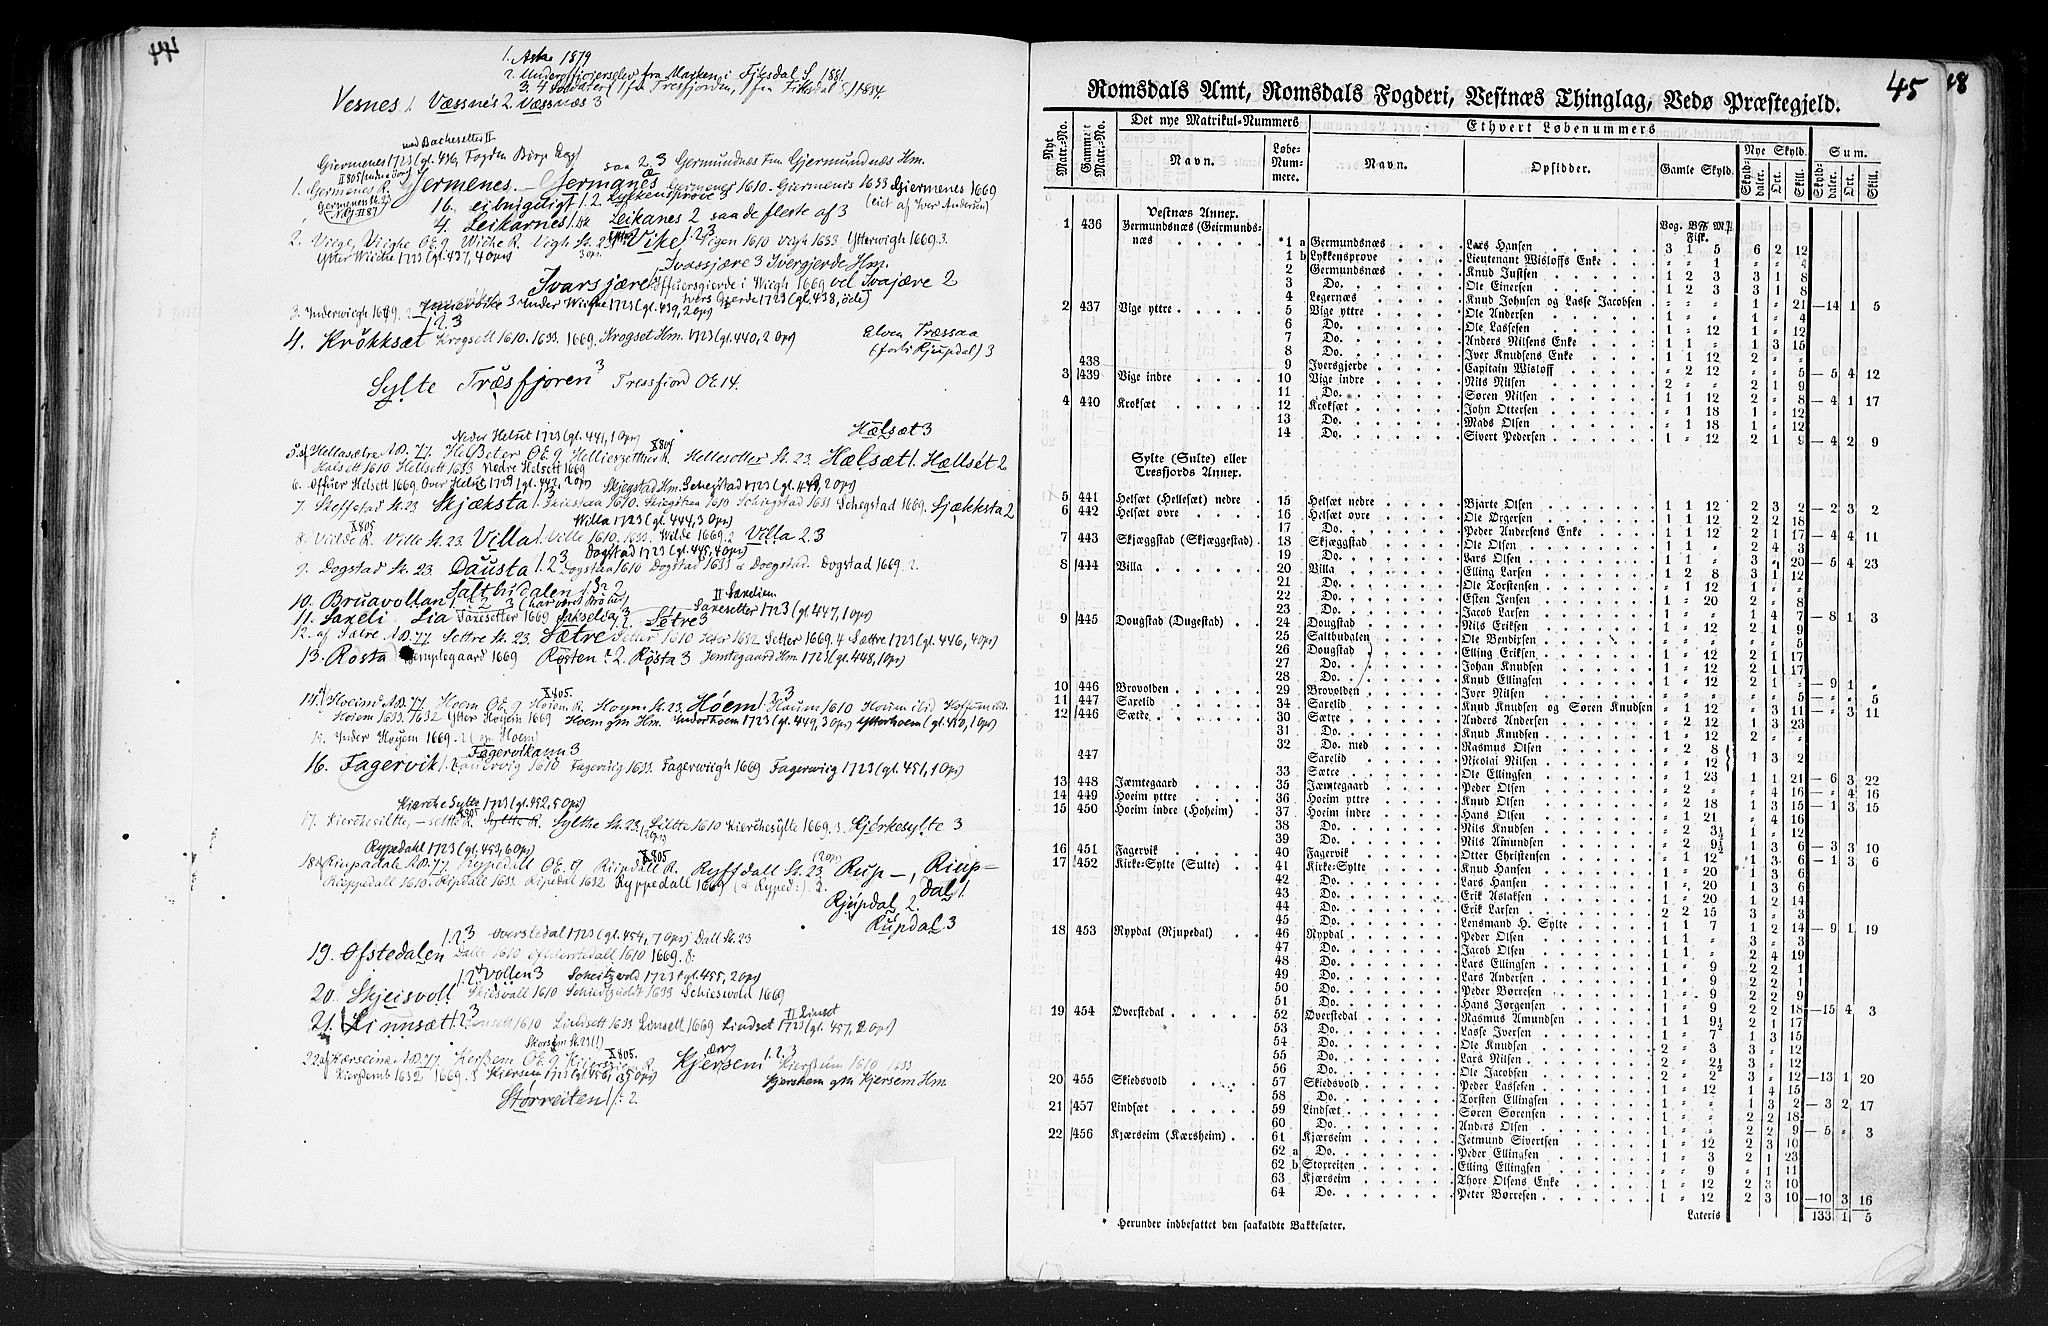 44
1. Aske 1879
2. Underofficierselev fra Marken i Fiksdal S. 1881.
3. 4 Soldater (1 fra Tresfjorden, 1 fra Fiksdal S.) 1884.
Vesnes 1. Væssnés 2 Væssnæs 3
Giermenes 1723 (gl. 436, Fogden
saa 2. 3 Germundnæs Fm. Gjermundnæs Hm.
1. Germenes R. Jermenes. – Germanes Germenes 1610. Giermenis 1633 Giermenes 1669
16. eibniguligt 1. 2 Lykkensprøve 3 (eiet af Iver Andersen)
4. Leikarnes 1. Leikanes 2 saa de fleste af 3
2. Viige, Viighe OE. 9 Wiche R. Vigh St. 23. Vike 1. 2 3 Vigen 1610 Vigh 1633 Ytterwigh 1669. 3.
Ytter Wiiche 1723 (gl. 437, 4 ops)
Ivassjære 3 Ivergjerde Hm.
Ivarsjære 1. Iffuersgierde i Wiigh 1669 vel Ivajære 2
3. Inderwiigh 1669. 2 Innevike 3 Inder Wiiche 1723 (gl. 439, 2 ops) Ivers Gierde 1723 (gl. 438, öde)
1 2. 3
4. Krökksæt Krogsett 1610. 1633. 1669. Krogset Hm. 1723 (gl. 440, 2 ops)
Elven Træssaa
(forbi Rjupdal) 3
Sylte Træsfjoren 3 Tressfiord OE. 14.
Neder Helset 1723 (gl. 441, 1 ops)
Hælsæt 3
5. Hellasætre AB. 77. Helßeter OE. 9 Hellieszetther R. Hellesetter St. 23. Hælsæt 1. Hællsét 2
Halsett 1610 Hellsett 1633 Nedre Helsett 1669
6. Offuer Helsett 1669. Over Helset 1723 (gl. 442, 2 ops) Skjegstad Hm. Scheistad 1723 (gl. 443, 2 ops)
7. Skeffstad St. 23 Skjæksta 1. Skiestaa 1610. Skiegstaa 1610 Schiegstad 1633 Schegstad 1669. Sjækksta 2
Willa 1723 (gl. 444, 3 ops)
8. Viilde R. Ville St. 23. Villa 1. Ville 1610. 1633. Wilde 1669. 2 Villa 2. 3
Dogstad 1723 (gl. 445, 4 ops)
9. Dogstad St. 23. Dausta 1. 2 3 Dogstaa 1610 Dogstad 1633 Doegstad. Dogstad 1669. 2.
Salthudalen 1. 3. 2
10. Bruavollan 1 2 3
Saxesetter 1723 (gl. 447, 1 ops)
11. Saxeli. Lia Saxesetter 1669 Sakselia 3
12. af Sætre AB. 77. Settre St. 23. Sætre Setter 1610 Seter 1632 Setter 1669. 4. Sættre 1723 (gl. 446, 4 ops)
13. Rosta Jemptegaard 1669 Rösten 2. Rösta 3 Jemtegaard Hm. 1723 (gl. 448, 1 ops)
14. Hoeimd AB. 77. Hoem OE. 9 Höiem R. Hoym St. 23. Höem 1. 2 3 Haium 1610 Hoium ibid
Hoiem 1633. 1632 Ytter Hoyem 1669 Hoem gm Hm. Inderhoem 1723 (gl. 449, 3 ops) Ytterhoem (gl. 450, 1 ops)
15. Inder Hoyem 1669. 2
Fagervikann 3
16. Fagervik 1. Fauervig 1610 Fagervig 1633. Fagerwiigh 1669 Fagerwiig 1723 (gl. 451, 1 ops)
Kierche Sylte 1723 (gl. 452, 5 ops)
17. Kierchesiltte, – seltte R. Syltte R. Sylthe St. 23. Siltte 1610 Kierchesylte 1669. 3. Kjörkesylte 3
Rypedahl 1723 (gl. 453, 6 ops)
18. Riupadale AB. 77. Ryppedall OE. 9 Riupdall R. Ryffdall St. 23 Rup –, Riup-
Rieppedall 1610. Ripdall 1633. Ripedal 1632 Ryppedall 1669 2. dal 1.
Rjüpdal 2.
Rüpdal 3
19. Öfstedalen 1. 2 3 Overstedal 1723 (gl. 454, 7 ops) Dall St. 23
20. Skjeisvoll 1 2 vollen 3 Scheitzvold 1723 (gl. 455, 2 ops)
Skiesvall 1610 1633 Schieswold 1669
21. Linnsætt 1. 2 3 Linsett 1610 Lindsett 1633 Linsett 1669 Lindset 1723 (gl. 457, 2 ops)
22. Kærseime AB. 77 Kierßem OE. 9 Kjiersziem R. Kjersem 1. 2. 3 Kierßum 1610 1633
Kierßemb 1632 1669. 8 Kiersem 1723 (gl. 456, 5 ops) Kjershem gm Kjersem Hm.
Storreiten 1: 2
45 48
Romsdals Amt, Romsdals Fogderi, Vestnæs Thinglag, Vedø Præstegjeld.
Nyt Matr.-No. Gammelt Matr.-No. Det nye Matrikul-Nummers Ethvert Løbenummers
Navn. Løbe-Nummere. Navn. Opsidder. Gamle Skyld. Nye Skyld. Sum.
Skylddaler. Ort. Skill. Skylddaler. Ort. Skill.
Vestnæs Annex. Vog. B℔ Fisk. M℔
1 436 Germundsnæs (Geirmundsnæs . . . *1 a Germundsnæs . . Lars Hansen 3 1 5 6 2 12
1 b Lykkensprove . . Lieutenant Wisloffs Enke „ „ 1 „ „ 4
2 Germundsnæs . . Knud Justsen 1 2 3 3 1 8
3 Do. Ole Einersen 1 2 3 3 1 8
4 Legernæs Knud Johnsen og Lasse Jacobsen „ „ „ 1 „ 21 — 14 1 5
2 437 Vige yttre 5 Vige yttre Ole Andersen „ „ „ 1 „ 4
6 Do. Ole Lassesen 1 „ 12 1 „ 12
7 Do. Anders Nilsens Enke 1 1 „ 1 3 15
8 Do. Iver Knudsens Enke 1 1 12 2 „ „
438 9 Iversgjerde Capitain Wisloff „ 2 12 „ „ 5 — 5 4 12
3 439 Vige indre 10 Vige indre Nils Nilsen 2 „ „ 2 1 9
11 Do. Søren Nilsen 1 1 12 2 „ 8 — 4 1 17
4 440 Kroksæt 12 Kroksæt John Ottersen „ 1 18 1 „ 12
13 Do. Mads Olsen „ 1 18 1 „ 12
14 Do. Sivert Pedersen 1 „ 12 2 1 9 — 4 2 9
Sylte (Sulte) eller
Tresfjords Annex.
5 441 Helsæt (Hellesæt) nedre 15 Helsæt nedre Bjarte Olsen 1 1 12 2 3 2 — 2 3 2
6 442 Helsæt øvre 16 Helsæt øvre Ole Orgersen 1 1 12 2 2 18
17 Do. Peder Andersens Enke 1 1 12 2 1 17 — 4 4 11
7 443 Skjæggstad (Skjæggestad) 18 Skjæggstad Ole Olsen 1 1 „ 2 4 3
19 Do. Lars Olsen 1 1 „ 3 „ 20 — 5 4 23
8 444 Villa 20 Villa Elling Larsen 1 2 8 3 1 12
21 Do. Ole Torstensen „ 1 12 1 „ „
22 Do. Esten Jensen 1 „ 20 2 „ 8
23 Do. Jacob Larsen „ „ „ 1 4 7 — 8 1 3
9 445 Dougstad (Dugestad) 24 Dougstad Nils Eriksen 1 „ 12 2 1 9
25 Salthudalen Ole Bendixsen „ „ „ „ „ 5
26 Dougstad Elling Eriksen 1 „ 12 2 1 17
27 Do. Johan Knudsen 1 „ 12 2 1 17
28 Do. Knud Ellingsen 1 „ 12 2 1 „ — 9 1 „
10 446 Brovolden 29 Brovolden Iver Nilsen „ „ „ „ „ 5 — „ „ 5
11 447 Saxelid 34 Saxelid Knud Knudsen og Søren Knudsen „ 1 12 „ 3 11 — „ 3 11
12 446 Sætre 30 Sætre Anders Andersen „ 2 12 1 3 23
31 Do. Knud Knudsen 1 „ 12 2 „ „
32 Do. med Rasmus Olsen „ 2 8
447 Saxelid Nicolai Nilsen „ „ 12 1 3 2
33 Sætre Ole Ellingsen „ 1 23 1 1 21 — 6 3 22
13 448 Jæmtegaard 35 Jæmtegaard Peder Olsen „ 2 „ „ 4 16 — „ 4 16
14 449 Hoeim yttre 36 Hoeim yttre Knud Olsen „ 2 18 1 3 15 — 1 3 15
15 450 Hoeim indre (Hoheim) 37 Hoeim indre Hans Olsen „ 1 21 „ 4 16
38 Do. Nils Knudsen „ 2 3½ 1 „ 12
39 Do. Nils Amundsen „ 2 9½ 1 3 6 — 3 3 10
16 451 Fagervik 40 Fagervik Otter Christensen „ 1 12 1 3 6 — 1 3 6
17 452 Kirke-Sylte (Sulte) 41 Kirke-Sylte Knud Hansen 1 „ 20 1 3 6
42 Do. Lars Hansen 1 „ 20 1 3 6
43 Do. Erik Aslaksen 1 „ 20 1 2 14
44 Do. Erik Larsen 2 2 15 3 „ 3
45 Do. Lensmand H. Sylte 1 1 7 1 2 14 — 9 1 19
18 453 Rypdal (Rjupedal) 46 Rypdal Peder Olsen 1 1 „ 3 „ 3
47 Do. Jacob Olsen 1 1 „ 2 4 19
48 Do. Lars Ellingsen 1 „ 9 2 2 1
49 Do. Lars Andersen 1 „ 9 2 2 1
50 Do. Peder Børresen 1 „ 9 2 2 9
51 Do. Hans Jørgensen 1 „ 9 2 2 18 — 15 4 3
19 454 Overstedal 52 Overstedal Rasmus Amundsen 1 1 9½ 2 1 17
53 Do. Lasse Iversen 1 „ 7 1 3 15
54 Do. Ole Knudsen 2 „ 3 3 „ 12
55 Do. Lars Nilsen 2 „ 2½ 3 „ 12
56 Do. Ole Jacobsen 2 „ 2 3 „ 12 — 13 1 20
20 455 Skiedsvold 57 Skiedsvold Peder Lassesen 1 „ 12 1 4 15
58 Do. Torsten Ellingsen 1 „ „ 1 3 2 — 3 2 17
21 457 Lindsæt 59 Lindsæt Søren Sørensen 1 „ „ 2 2 18
60 Do. Anders Olsen 1 „ „ 2 2 9 — 5 „ 3
22 456 Kjærseim (Kærsheim) 61 Kjærseim Jetmund Sivertsen 1 „ 12 2 3 10
62 a Do. Peder Ellingsen 1 „ 3 2 1 23
62 b Storreiten Elling Ellingsen „ „ 9 „ 1 11
63 Kjærseim Thore Olsens Enke 1 „ 12 2 3 10
64 Do. Peter Børresen 1 „ 12 2 3 10 — 10 3 16
Lateris 133 1 5
* Herunder indbefattet den saakaldte Bakkesæter.